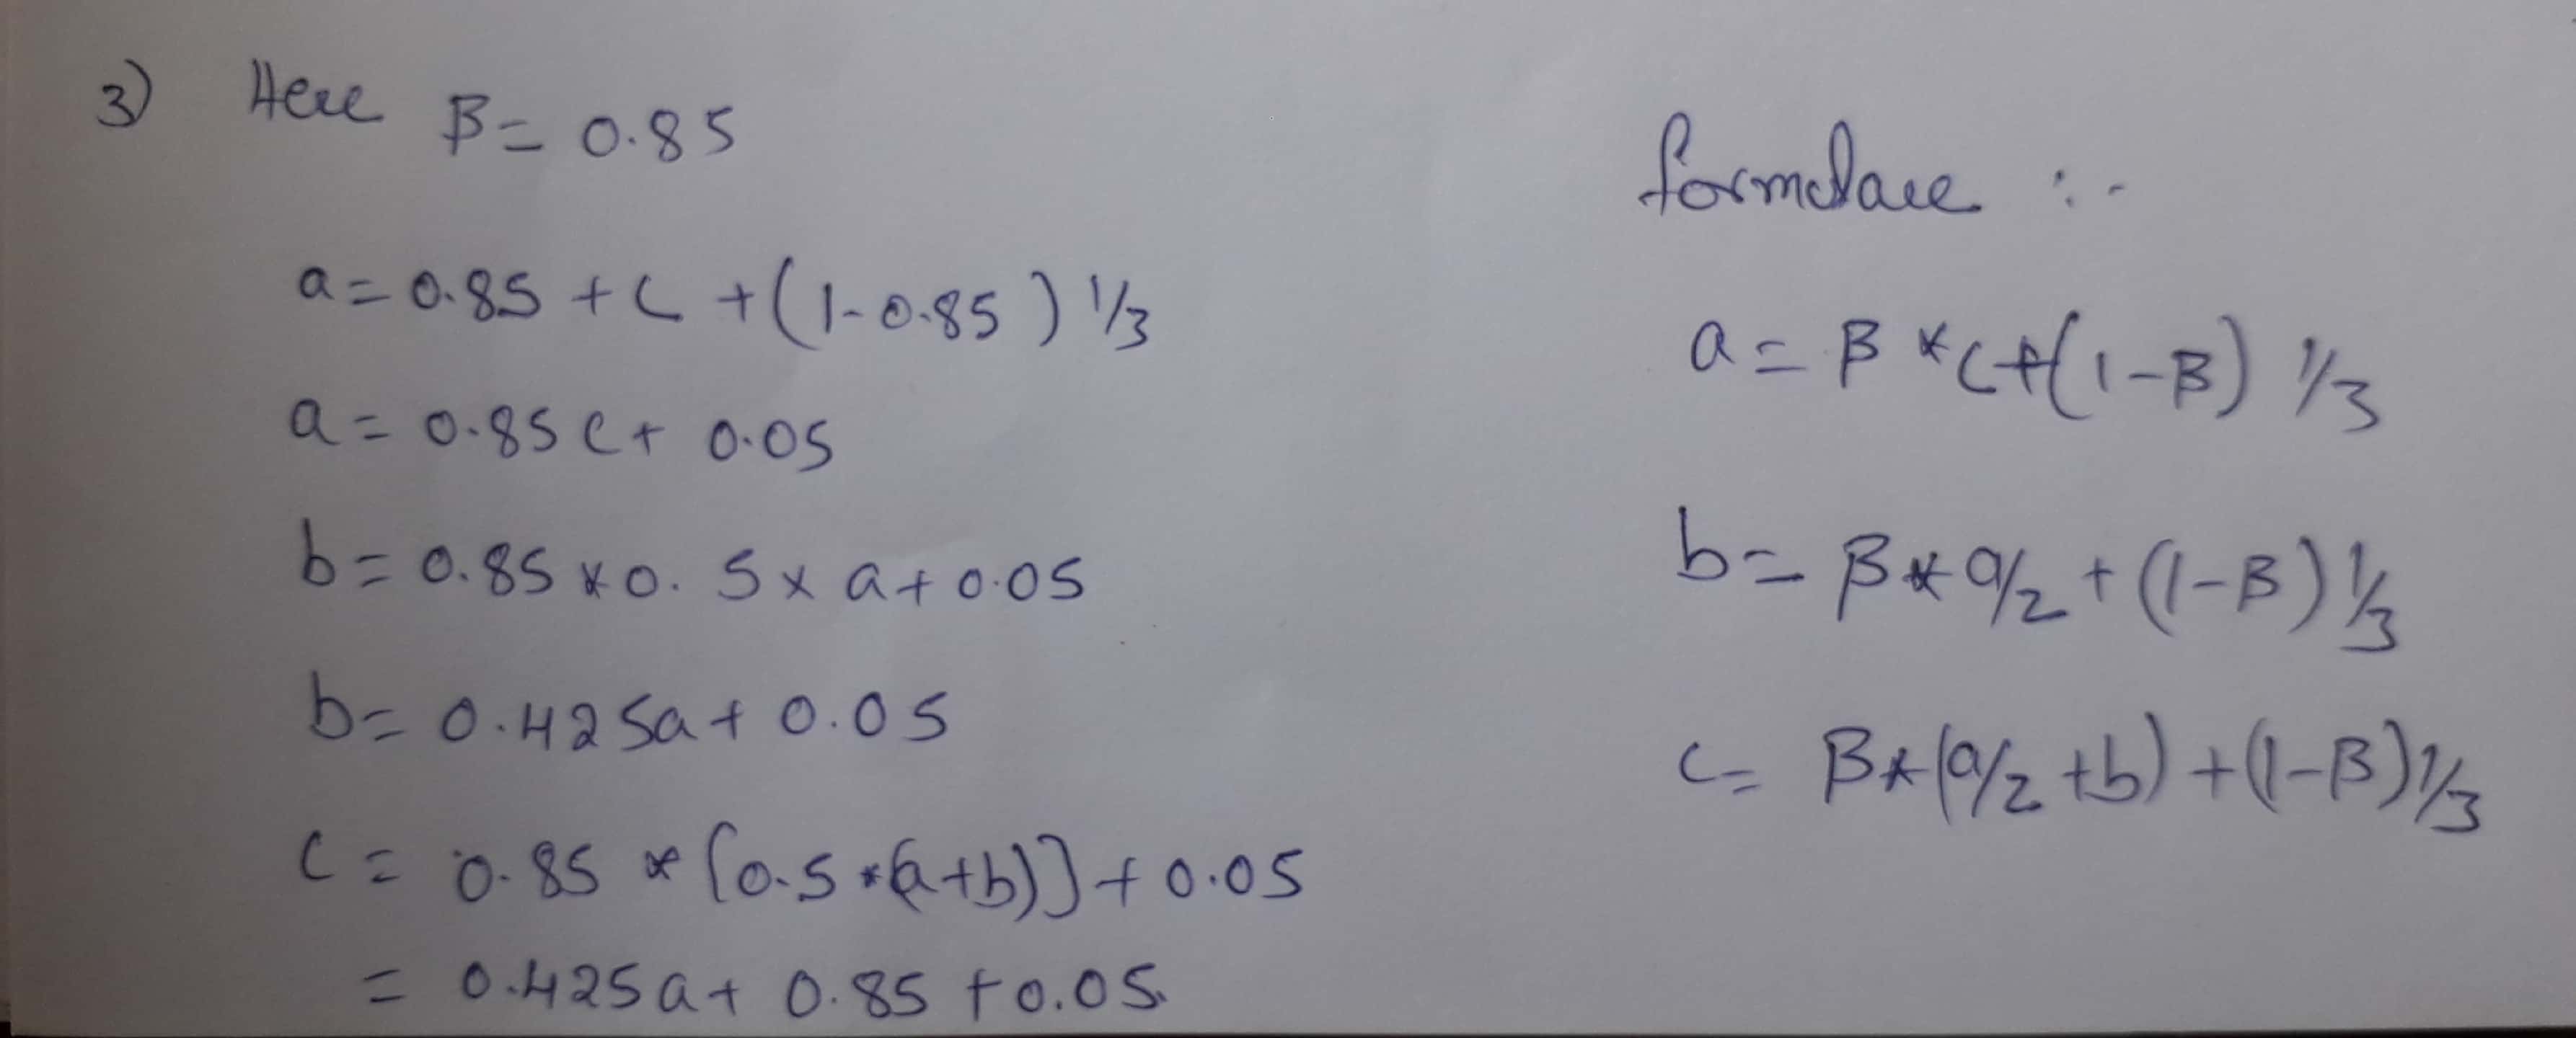 3) Here B = 0.85
a = 0.85 + c + (1-0.85) 1/3
a = 0.85 c + 0.05
b = 0.85 * 0.5 x a + 0.05
b = 0.425a + 0.05
c = 0.85 * [0.5 * (a+b)] + 0.05
= 0.425a + 0.85 + 0.05
formulae :-
a = B * c + (1-B) 1/3
b = B * a/2 + (1-B) 1/3
c = B * (a/2 + b) + (1-B) 1/3